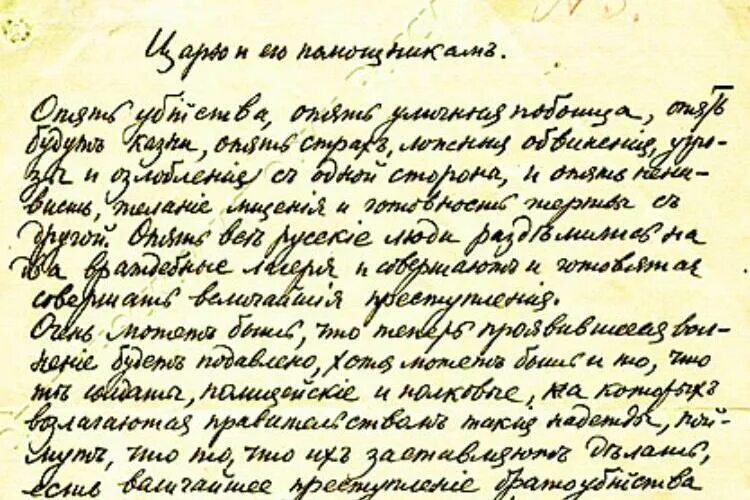 Царю и его помощникамъ.
Опять убійства, опять уличныя побоища, опять
будутъ казни, опять страхъ, ложныя обвиненія, угро-
зы и озлобленія съ одной стороны, и опять нена-
висть, желаніе мщенія и готовность жертвы съ
другой. Опять всѣ русскіе люди раздѣлились на
два враждебные лагеря и совершаютъ и готовятся
совершать величайшія преступленія.
Очень можетъ быть, что теперь проявившееся вол-
неніе будетъ подавлено, хотя можетъ быть и то, что
тѣ солдаты, полицейскіе и полковые, на которыхъ
возлагаются правительствомъ такія надежды, пой-
мутъ, что то, что ихъ заставляютъ дѣлать,
есть величайшее преступленіе братоубійства